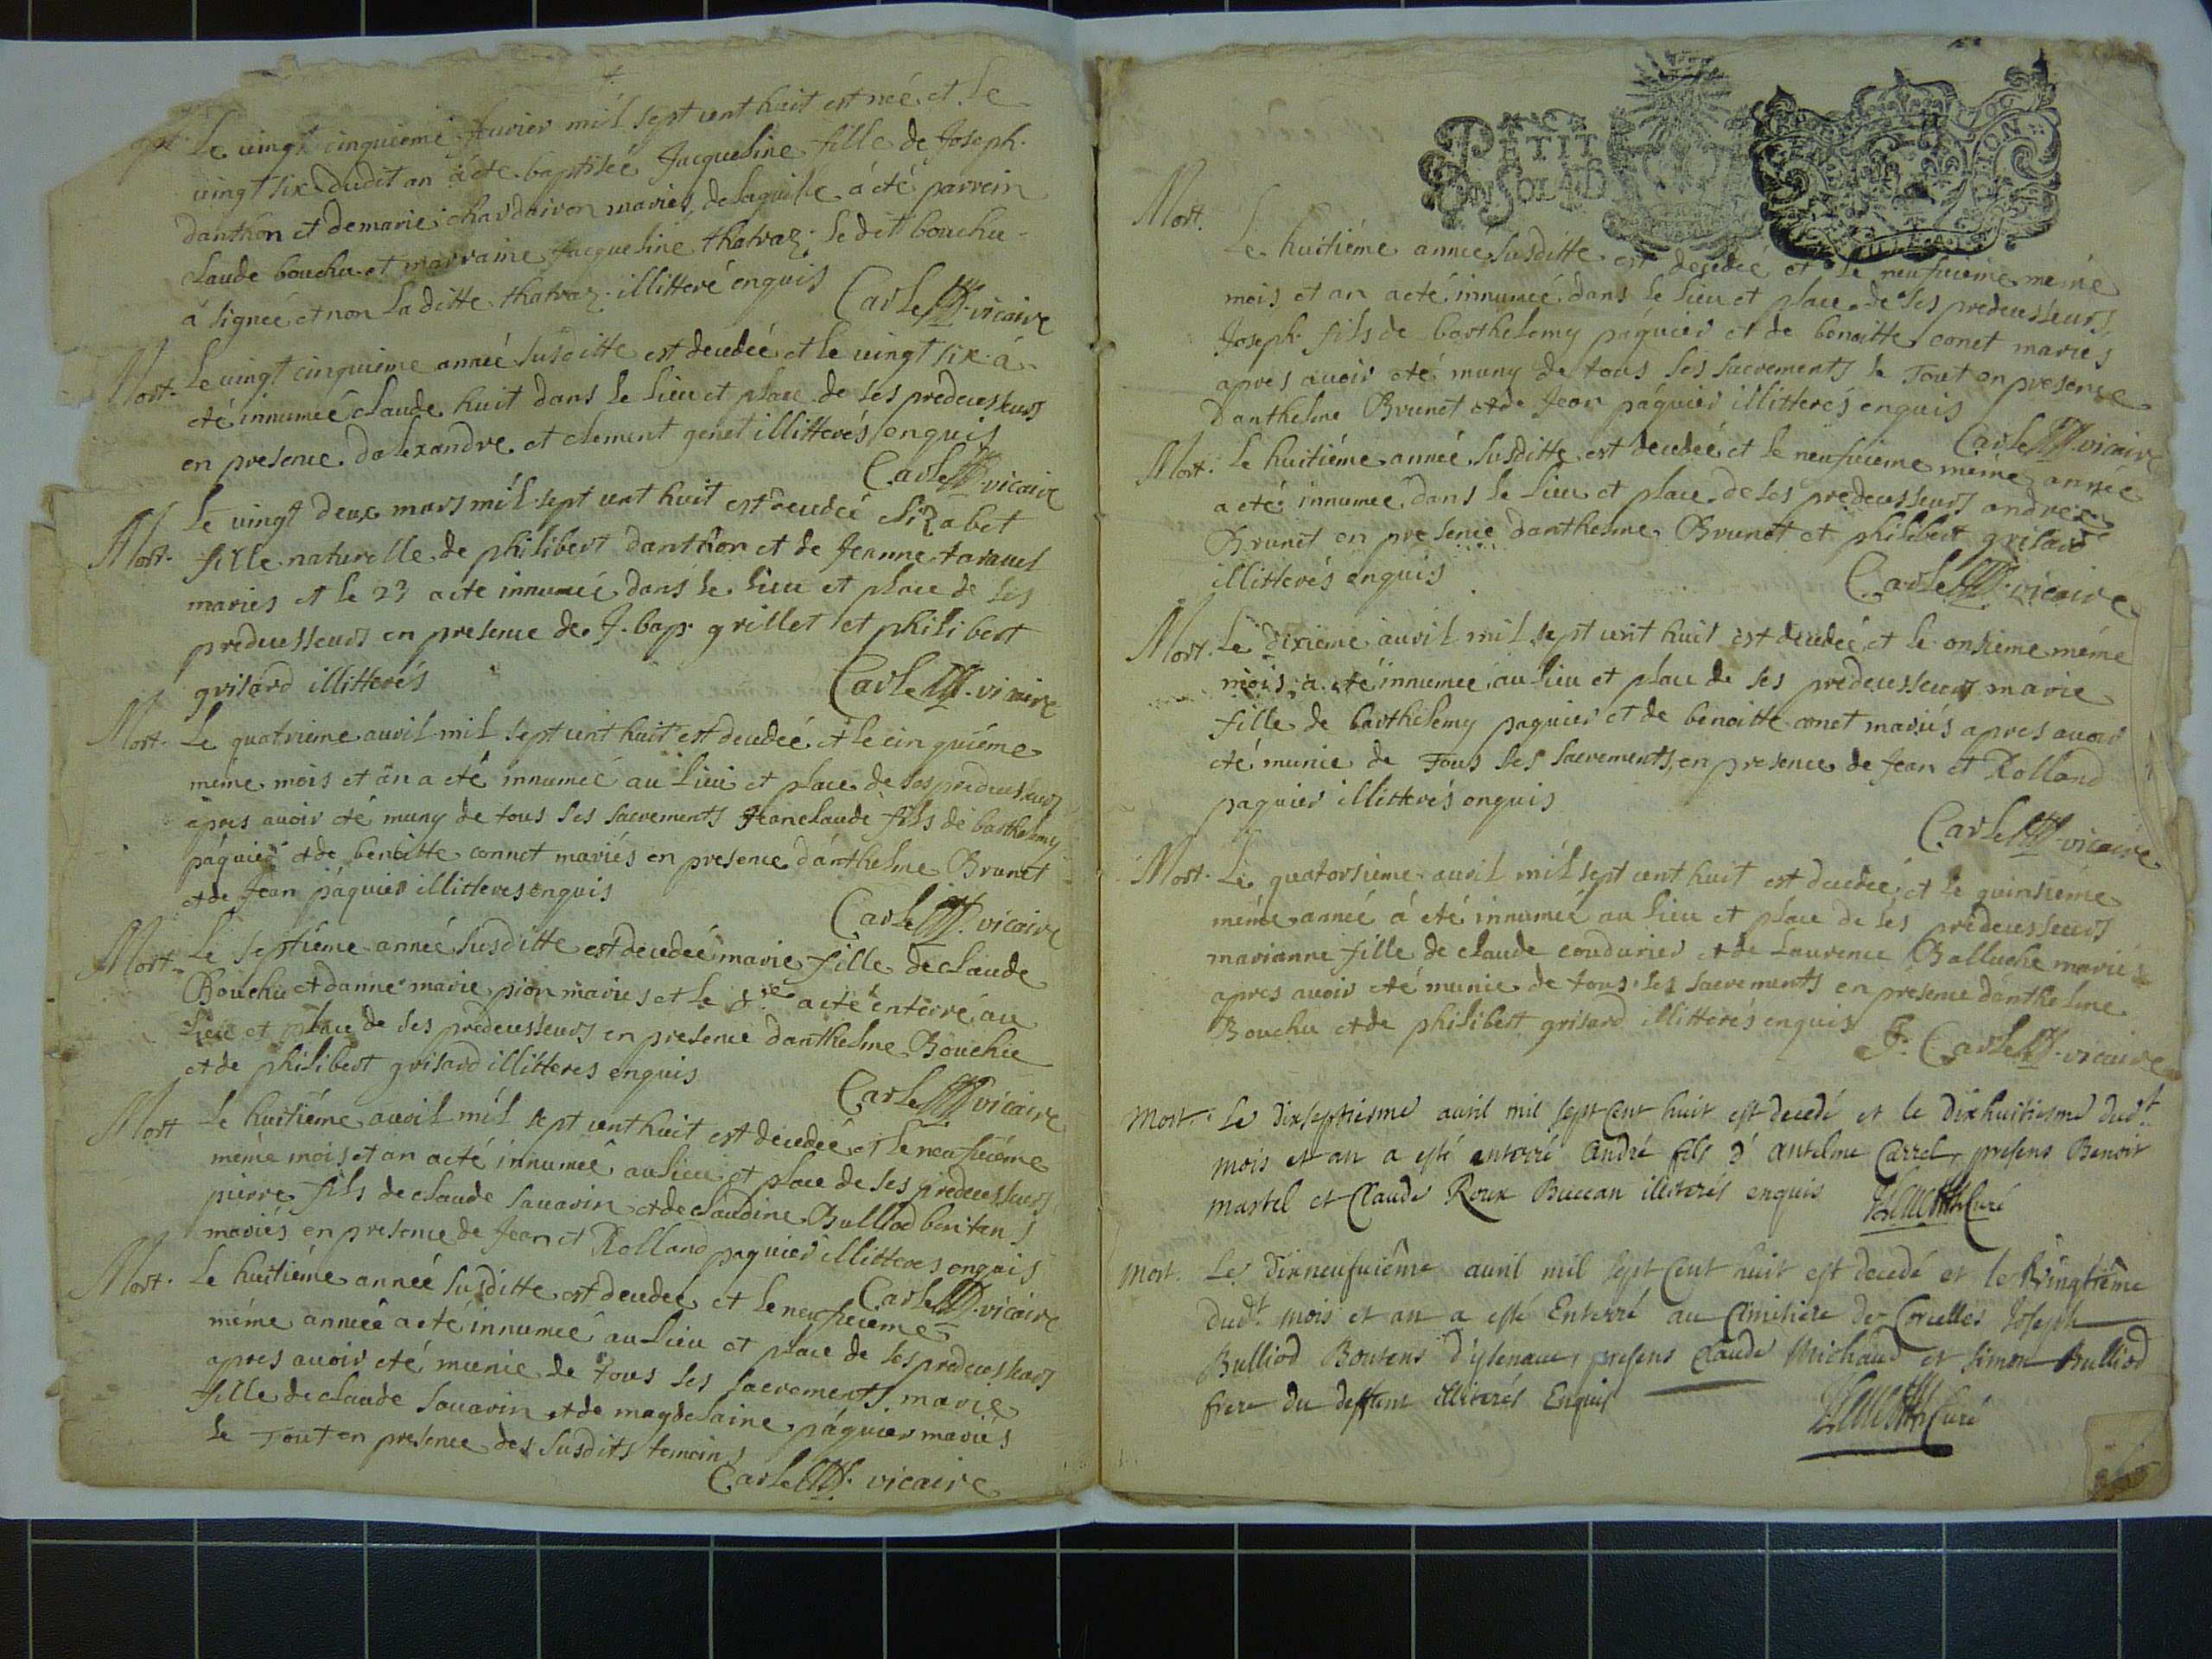 Le vingt cinquieme fevrier mil sept cent huit est née et le
vingt six dudit an a eté baptisée Jacqueline fille de Joseph
danthon et de marie chardairon mariés, de laquelle a été parrein
claude bouchu et marraine Jacqueline thatraz; le dit bouchu
a signée et non la ditte thatraz illitteré enquis
Carle vicaire
Mort. Le vingt cinquieme année susditte est decedée et le vingt six a
eté innumeé claude huit dans le lieu et place de ses predecesseurs
en presence dalexandre et clement genet illitterés enquis
Carle vicaire
Mort. Le vingt deux mars mil sept cent huit est decedeé elizabet
fille naturelle de philibert danthon et de Jeanne taravel
mariés et le 23 a eté innumeé dans le lieu et place de ses
predecesseurs en presence de J. bap. grillet et philibert
grisard illitterés
Carle vicaire
Mort. Le quatrieme auril mil sept cent huit est decedeé et le cinquiéme
méme mois et an a eté innumeé au lieu et place de ses predecesseurs
apres auoir eté muny de tous ses sacrements Jean claude fils de barthelemy
páquier et de benoitte connet mariés en presence dánthelme Brunet
et de Jean páquier illitteres enquis
Carle vicaire
Mort. Le septiéme anneé susditte est decedeé marie fille de claude
Bouchu et danne marie pion mariés et le 8.me a eté enterré au
lieu et place de ses predecesseurs en presence danthelme Bouchu
et de philibert grisard illitteres enquis
Carle vicaire
Mort Le huitiéme auril mil sept cent huit est decedeé et le neufuiéme
méme mois et an a eté innumeé au lieu et place de ses predecesseurs
pierre fils de claude sauarin et de claudine Bulliod
mariés en presence de Jean et Rolland paquier illitteres enquis
Carle vicaire
Mort. Le huitiéme anneé susditte est decedeé et le neufuieme
méme anneé a eté innumeé au lieu et place de ses predecesseurs
apres auoir eté munie de tous ses sacrements marie
fille de claude sauarin et de magdelaine páquier mariés
le Tout en presence des susdits temoins
Carle vicaire
PETIT
Mort. Le huitiéme anneé susditte est decedeé et le neufuieme méme
mois et an a eté innumeé dans le lieu et place de ses predecesseurs
Joseph fils de barthelemy páquier et de benoitte conet mariés
apres auoir eté muny de tous ses sacrements le Tout en presence
Danthelme Brunet et de Jean páquier illitterés enquis
Carle vicaire
Mort. Le huitiéme anneé susditte est decedeé et le neufuieme méme anneé
a eté innumeé dans le lieu et place de ses predecesseurs
Brunet en presence danthelme Brunet et philibert grisard
illitterés enquis
Carle vicaire
Mort. Le dixieme auril mil sept cent huit est decedeé et le onsieme méme
mois a eté innumeé au lieu et place de ses predecesseurs marie
fille de barthelemy paquier et de benoitte conet mariés apres auoir
eté munie de Tous ses sacrements, en presence de Jean et Rolland
paquier illitterés enquis
Carle vicaire
Mort. Le quatorsieme auril mil sept cent huit est decedeé et le quinsieme
méme anneé á eté innumeé au lieu et place de ses predecesseurs
marianne fille de claude coudurier et de Laurence Balluche mariés
apres auoir eté munie de tous ses sacrements en presence dánthelme
Bouchu et de philibert grisard illitterés enquis
Carle vicaire
Mort. Le Dixseptiesme auril mil sept cent huit est decedé et le Dixhuitiesme dudt
mois et an a esté enterré André fils d'antelme Carrel, presens Benoit
martel et Claude Roux Buccan illiterés enquis
Curé
Mort. Le Dixneufuiême auril mil sept cent huit est decedé et le vingtiême
dudt mois et an a esté Enterré au Cimitiere de Corcelles Joseph
Bulliod Boutens d'yzenaue, presens Claude Michaud et simon Bulliod
frere du deffunt illiterés Enquis
Curé